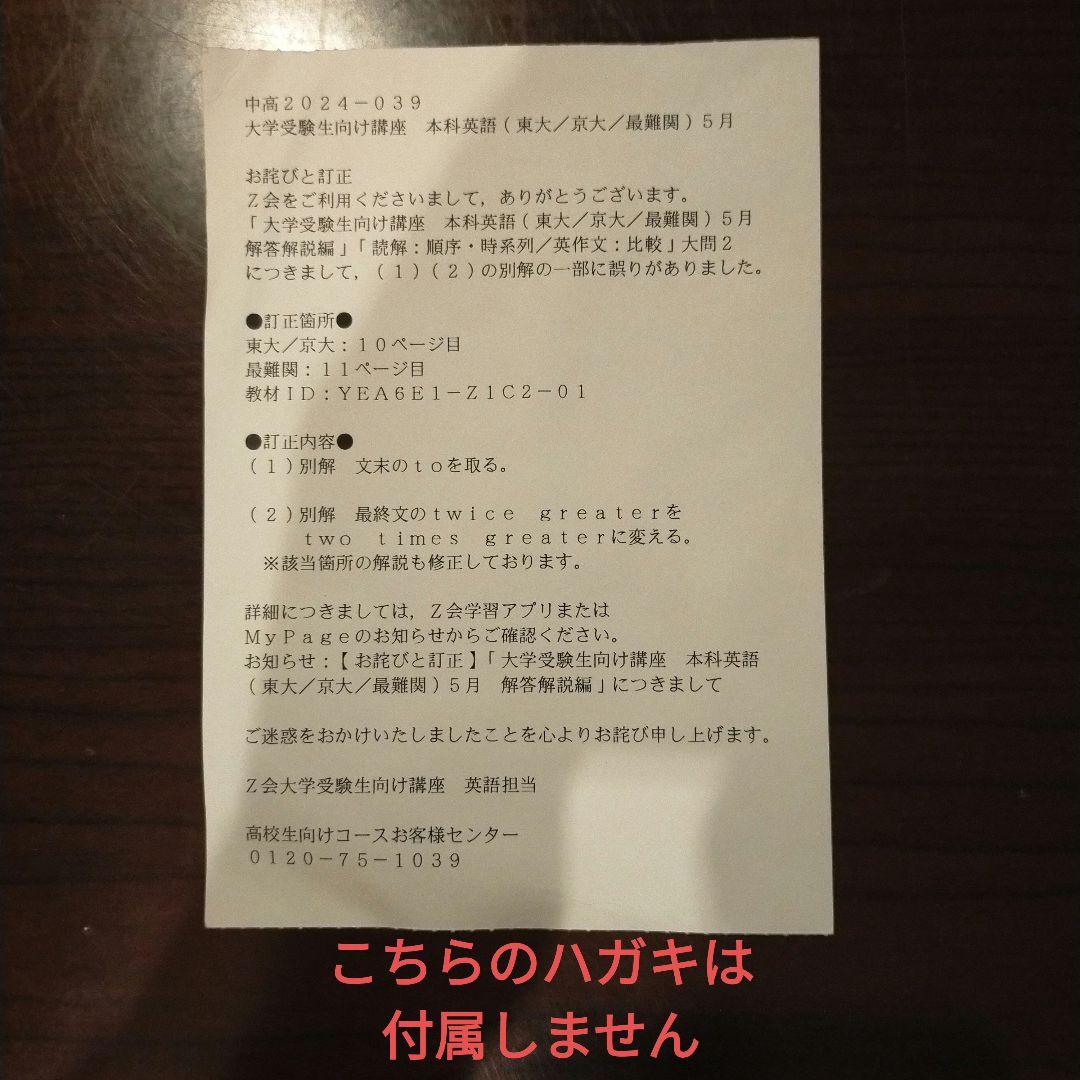 中高２０２４－０３９
大学受験生向け講座　本科英語(東大／京大／最難関)５月
お詫びと訂正
Ｚ会をご利用くださいまして，ありがとうございます。
「大学受験生向け講座　本科英語(東大／京大／最難関)５月
解答解説編」「読解：順序・時系列／英作文：比較」大問２
につきまして，(１)(２)の別解の一部に誤りがありました。
●訂正箇所●
東大／京大：１０ページ目
最難関：１１ページ目
教材ＩＤ：ＹＥＡ６Ｅ１－Ｚ１Ｃ２－０１
●訂正内容●
(１)別解　文末のｔｏを取る。
(２)別解　最終文のｔｗｉｃｅ　ｇｒｅａｔｅｒを
ｔｗｏ　ｔｉｍｅｓ　ｇｒｅａｔｅｒに変える。
※該当箇所の解説も修正しております。
詳細につきましては，Ｚ会学習アプリまたは
ＭｙＰａｇｅのお知らせからご確認ください。
お知らせ：【お詫びと訂正】「大学受験生向け講座　本科英語
(東大／京大／最難関)５月　解答解説編」につきまして
ご迷惑をおかけいたしましたことを心よりお詫び申し上げます。
Ｚ会大学受験生向け講座　英語担当
高校生向けコースお客様センター
０１２０－７５－１０３９
こちらのハガキは
付属しません